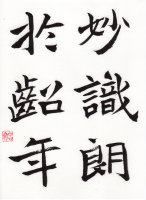 妙識朗
於齠年